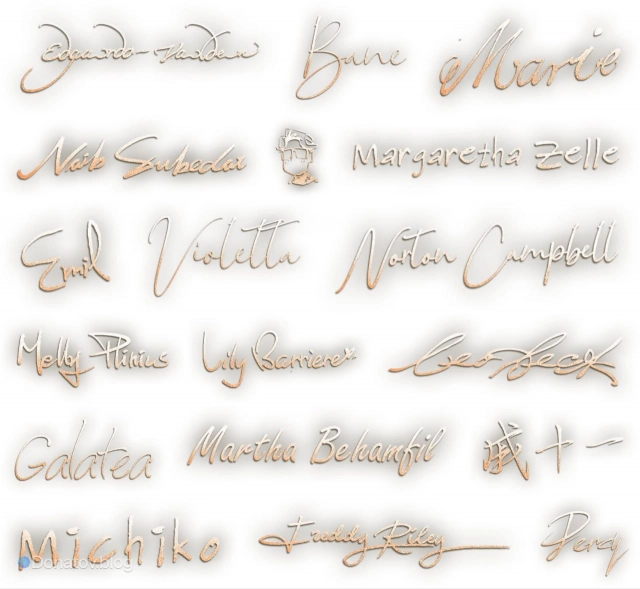 Edgardo Valden Bane Marie
Naib Subedar Margaretha Zelle
Emil Violetta Norton Campbell
Melly Plinius Lily Barriere Leo Beck
Galatea Martha Behamfil 戚十一
Michiko Freddy Riley Percy
Donatov.blog